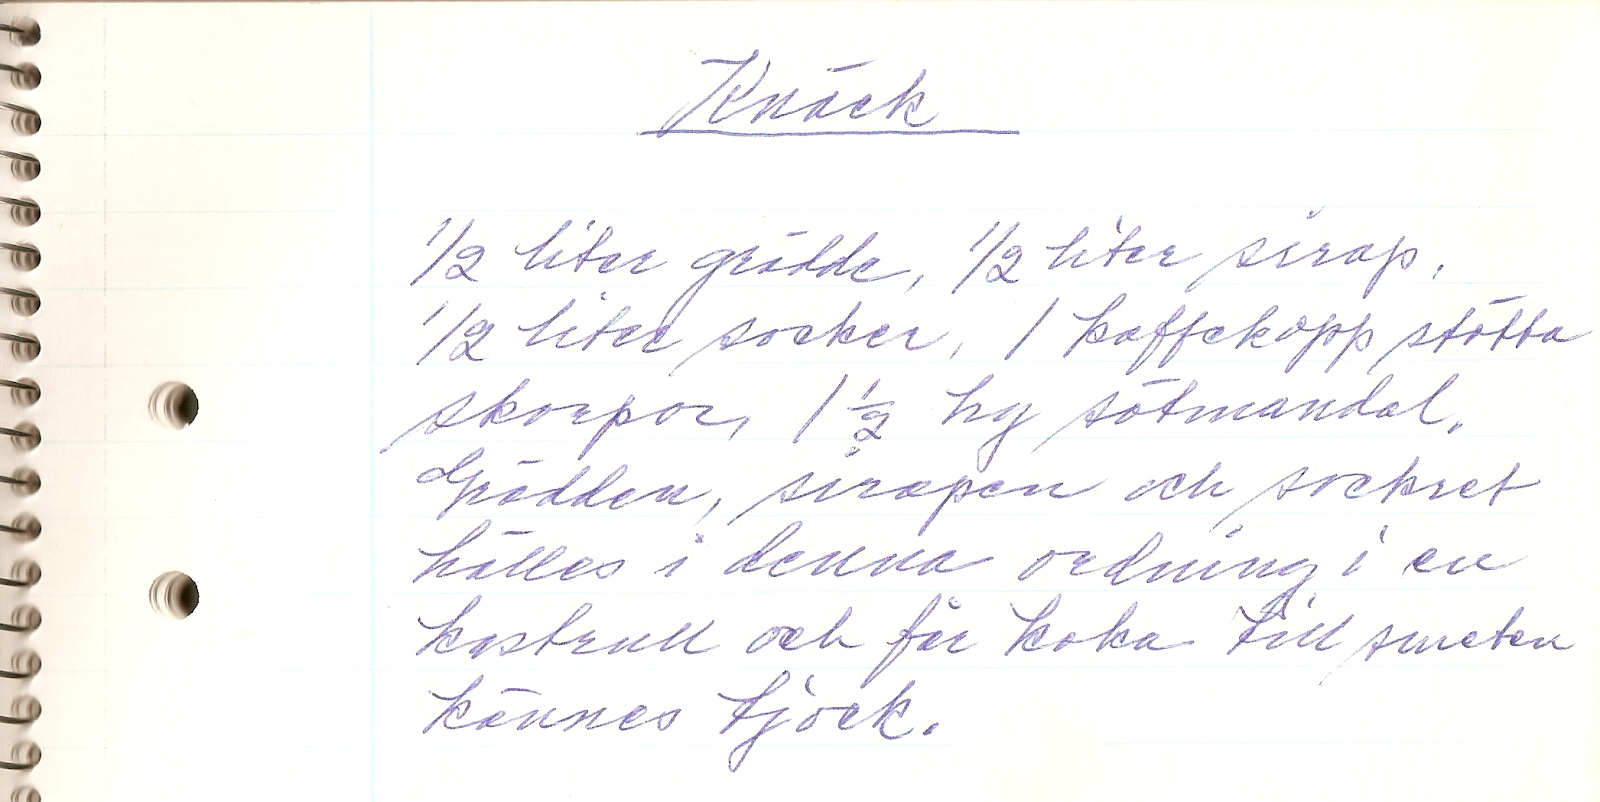 Knäck
1/2 liter grädde, 1/2 liter sirap,
1/2 liter socker, 1 kaffekopp stötta
skorpor, 1 1/2 hg sötmandel.
Grädden, sirapen och sockret
hälles i denna ordning i en
kastrull och får koka till smeten
kännes tjock.